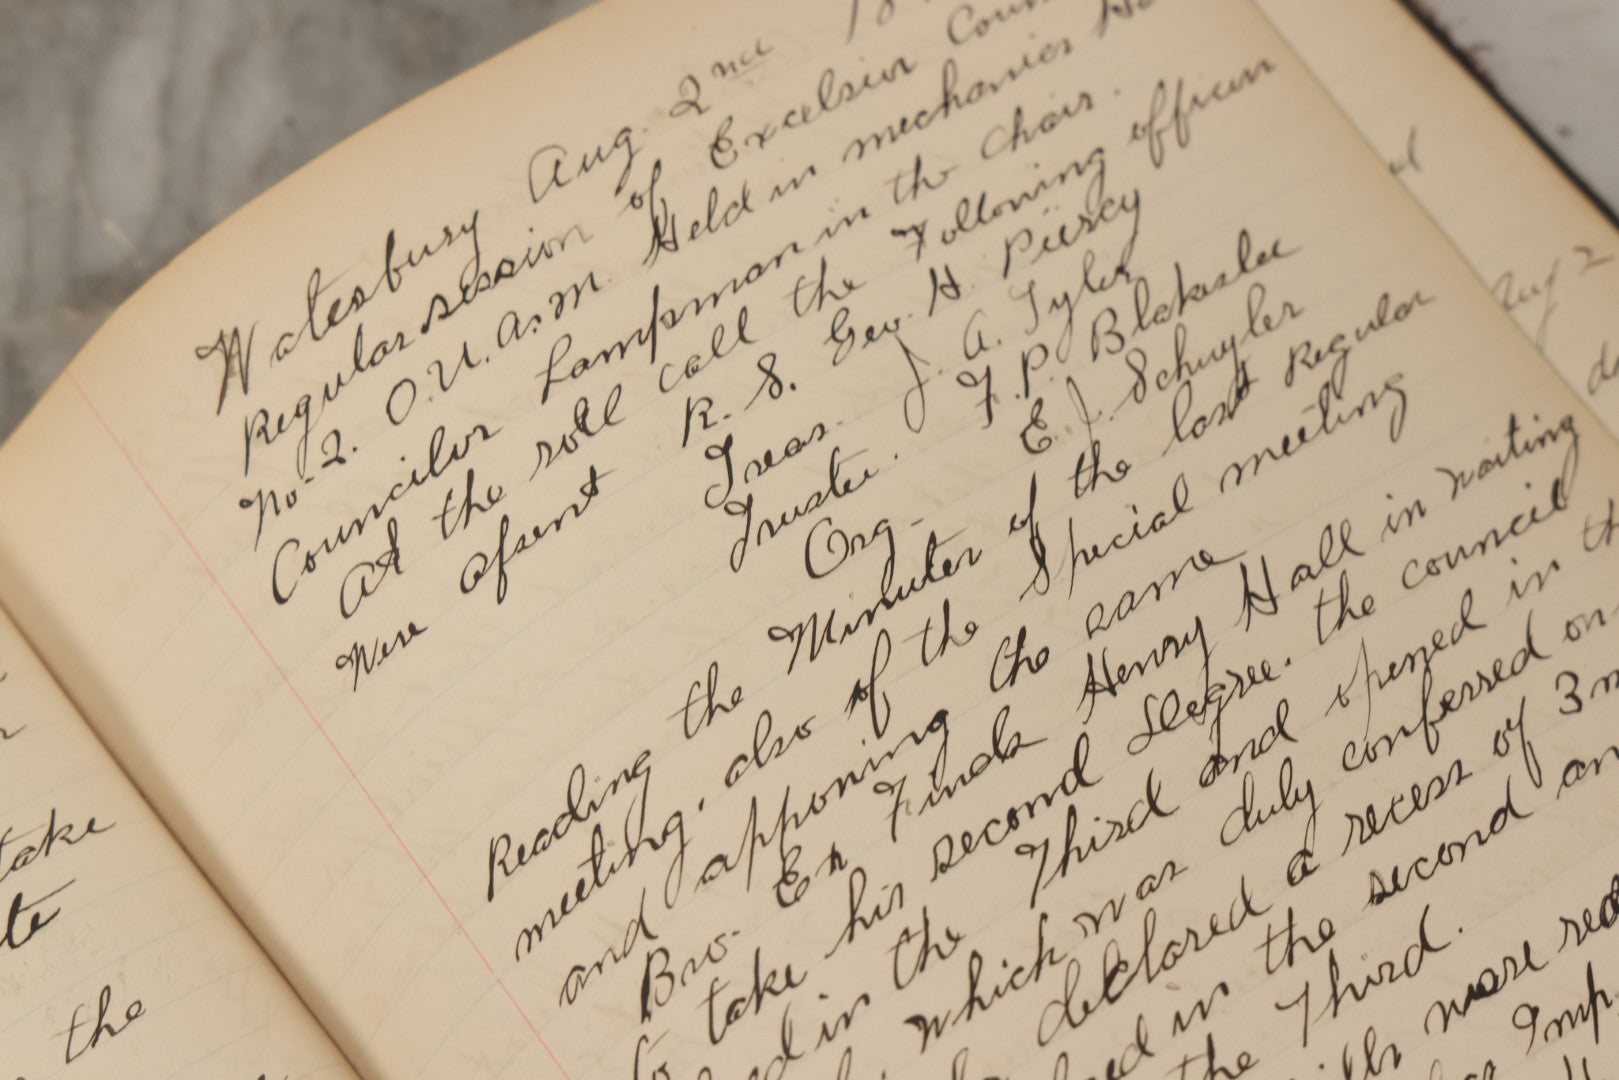 take
te
the
Waterbury Aug. 2nd
Regular session of Excelsior Coun
No-2. O.U.A.M. Held in mechanics Ha
Councilor Lampman in the chair.
At the roll call the Following officers
Were absent R. S. Geo. H. Piercy
Treas. J. A. Tyler
Trustee. F. P. Blakeslee
Org- E. J. Schuyler
Reading the Minutes of the last Regular
meeting, also of the Special meeting
and apponing the same
Bro. Ex Finds Henry Hall in waiting
to take his second degree. the council
in the Third and opened in th
which was duly conferred on
declared a recess of 3 m
in the second an
the Third.
were rea
Imp
Aug 2